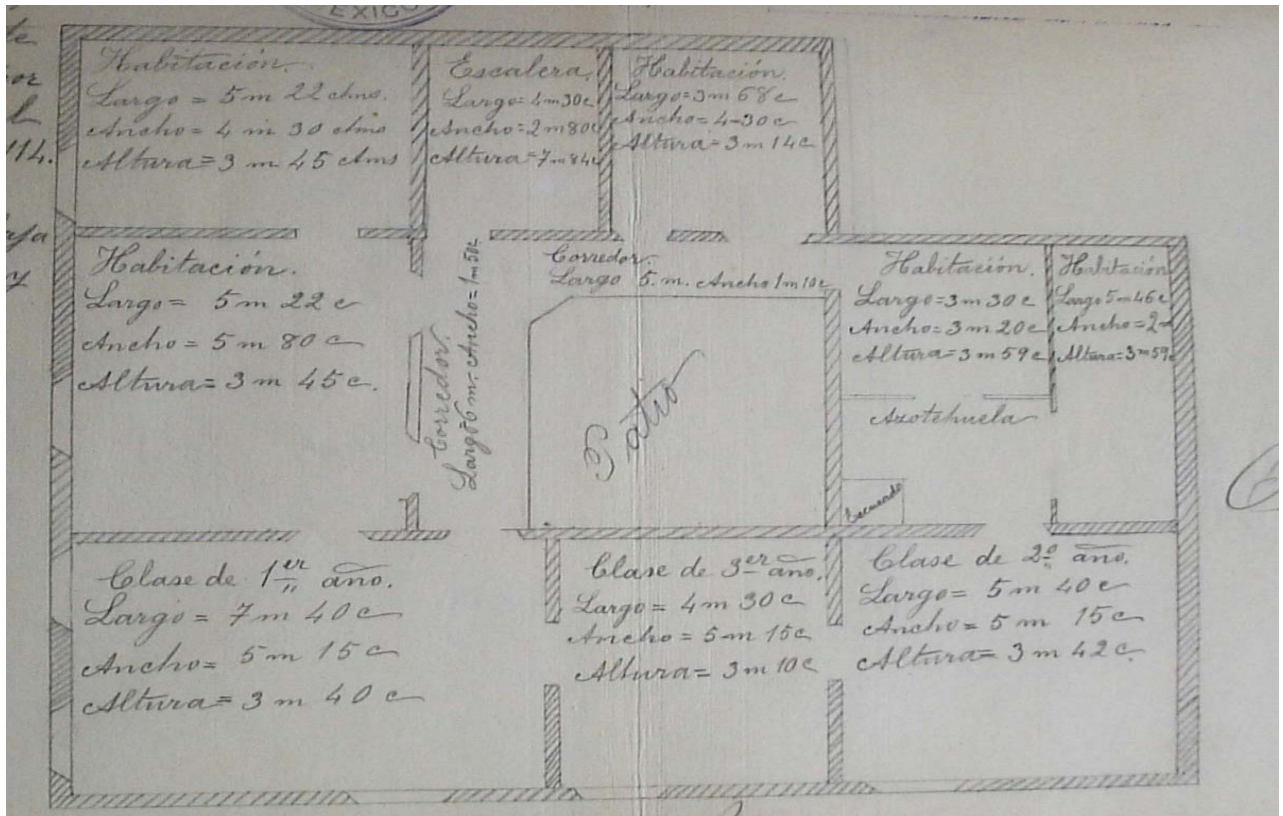 EXICO
de
por
114.
y
Habitación.
Largo = 5 m 22 ctms.
Ancho = 4 m 30 ctms
Altura = 3 m 45 ctms
Escalera.
Largo = 4 m 30 c
Ancho = 2 m 80 c
Altura = 7 m 84 c
Habitación.
Largo = 3 m 68 c
Ancho = 4-30 c
Altura = 3 m 14 c
Habitación.
Largo = 5 m 22 c
Ancho = 5 m 80 c
Altura = 3 m 45 c.
Corredor.
Largo 6 m. Ancho = 1 m 50 c
Corredor.
Largo 5. m. Ancho 1 m 10 c
Patio
Habitación.
Largo = 3 m 30 c
Ancho = 3 m 20 c
Altura = 3 m 59 c
Habitación
Largo 5 m 46 c
Ancho = 2 m
Altura = 3 m 59 c
Azotehuela
Escusado
Clase de 1er año.
Largo = 7 m 40 c
Ancho = 5 m 15 c
Altura = 3 m 40 c
Clase de 3er año.
Largo = 4 m 30 c
Ancho = 5 m 15 c
Altura = 3 m 10 c
Clase de 2º año.
Largo = 5 m 40 c
Ancho = 5 m 15 c
Altura = 3 m 42 c.